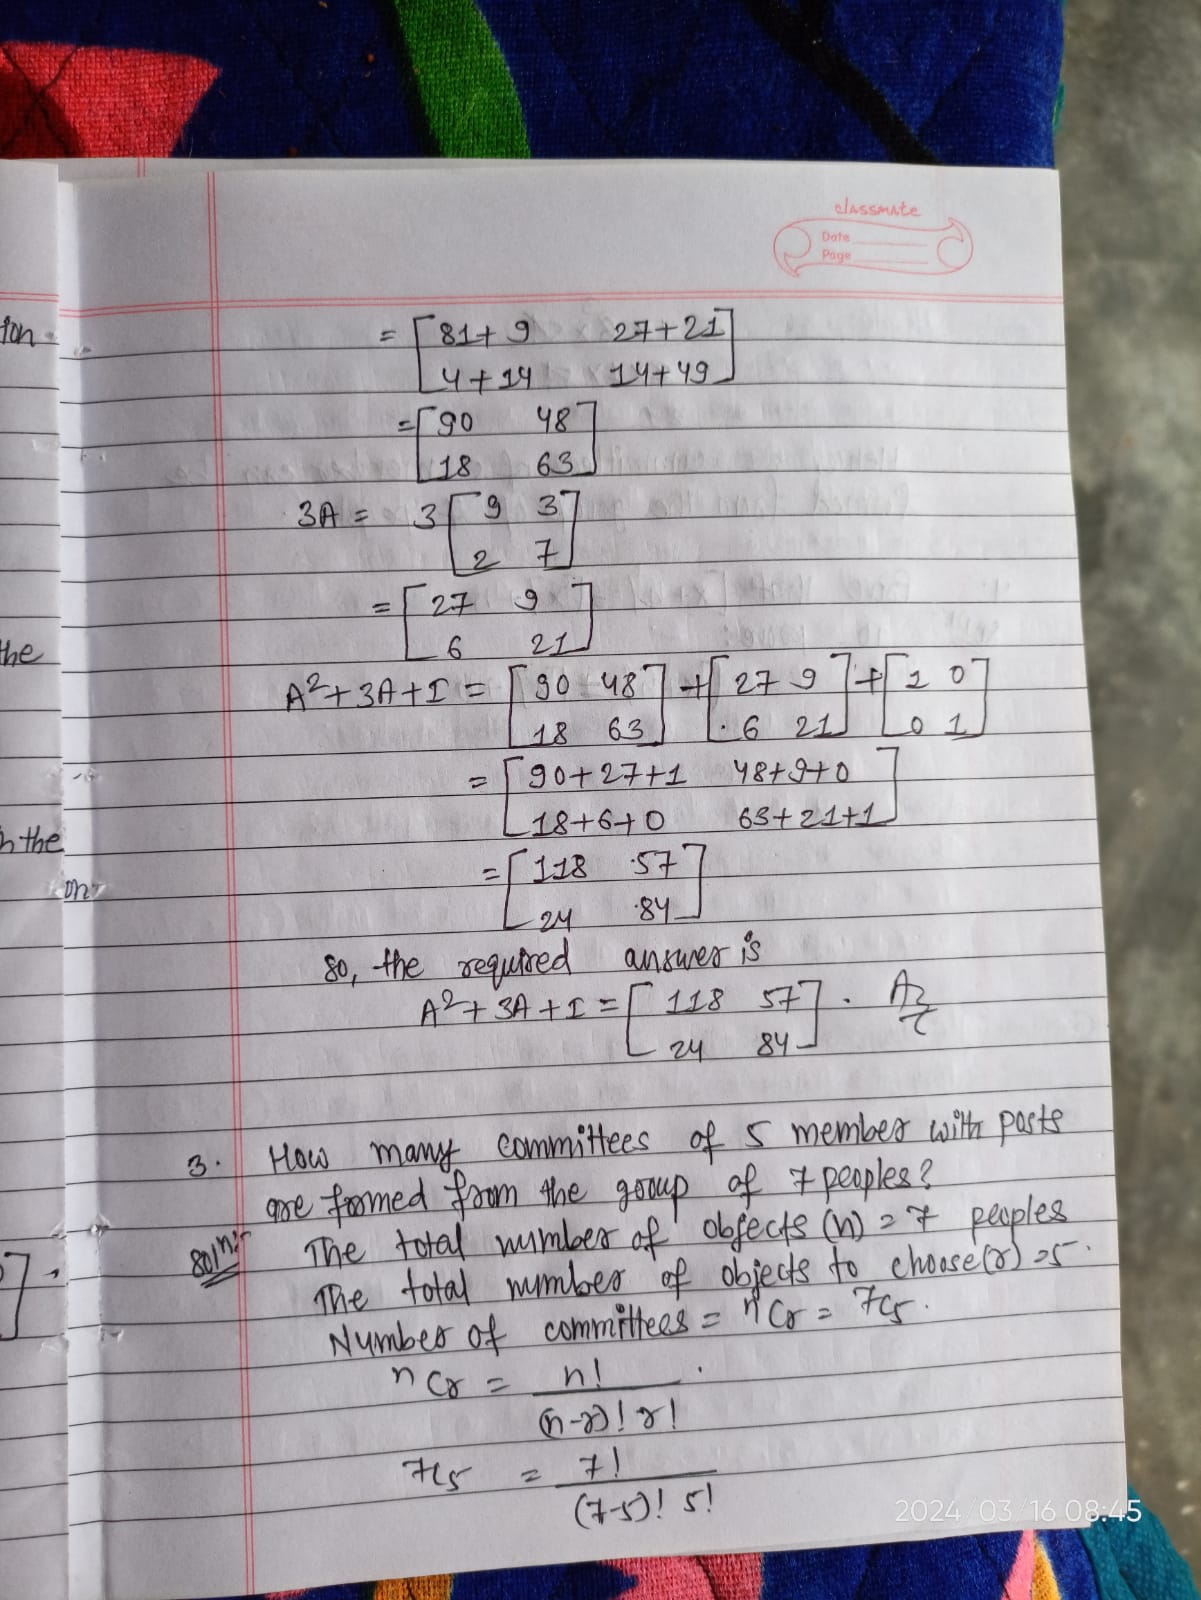 classmate
Date
Page
= [81+9 27+21]
[4+14 14+49]
= [90 48]
[18 63]
3A = 3 [9 3]
[2 7]
= [27 9]
[6 21]
A²+3A+I = [90 48] + [27 9] + [1 0]
[18 63] [6 21] [0 1]
= [90+27+1 48+9+0]
[18+6+0 63+21+1]
= [118 57]
[24 84]
so, the required answer is
A²+3A+I = [118 57].
[24 84]
3. How many committees of 5 member with posts
are formed from the group of 7 peoples?
Solⁿ:- The total number of objects (n) = 7 peoples
The total number of objects to choose (r) = 5.
Number of committees = nCr = 7C5.
nCr = n!
(n-r)! r!
7C5 = 7!
(7-5)! 5!
tion
the
n the
on
2024/03/16 08:45